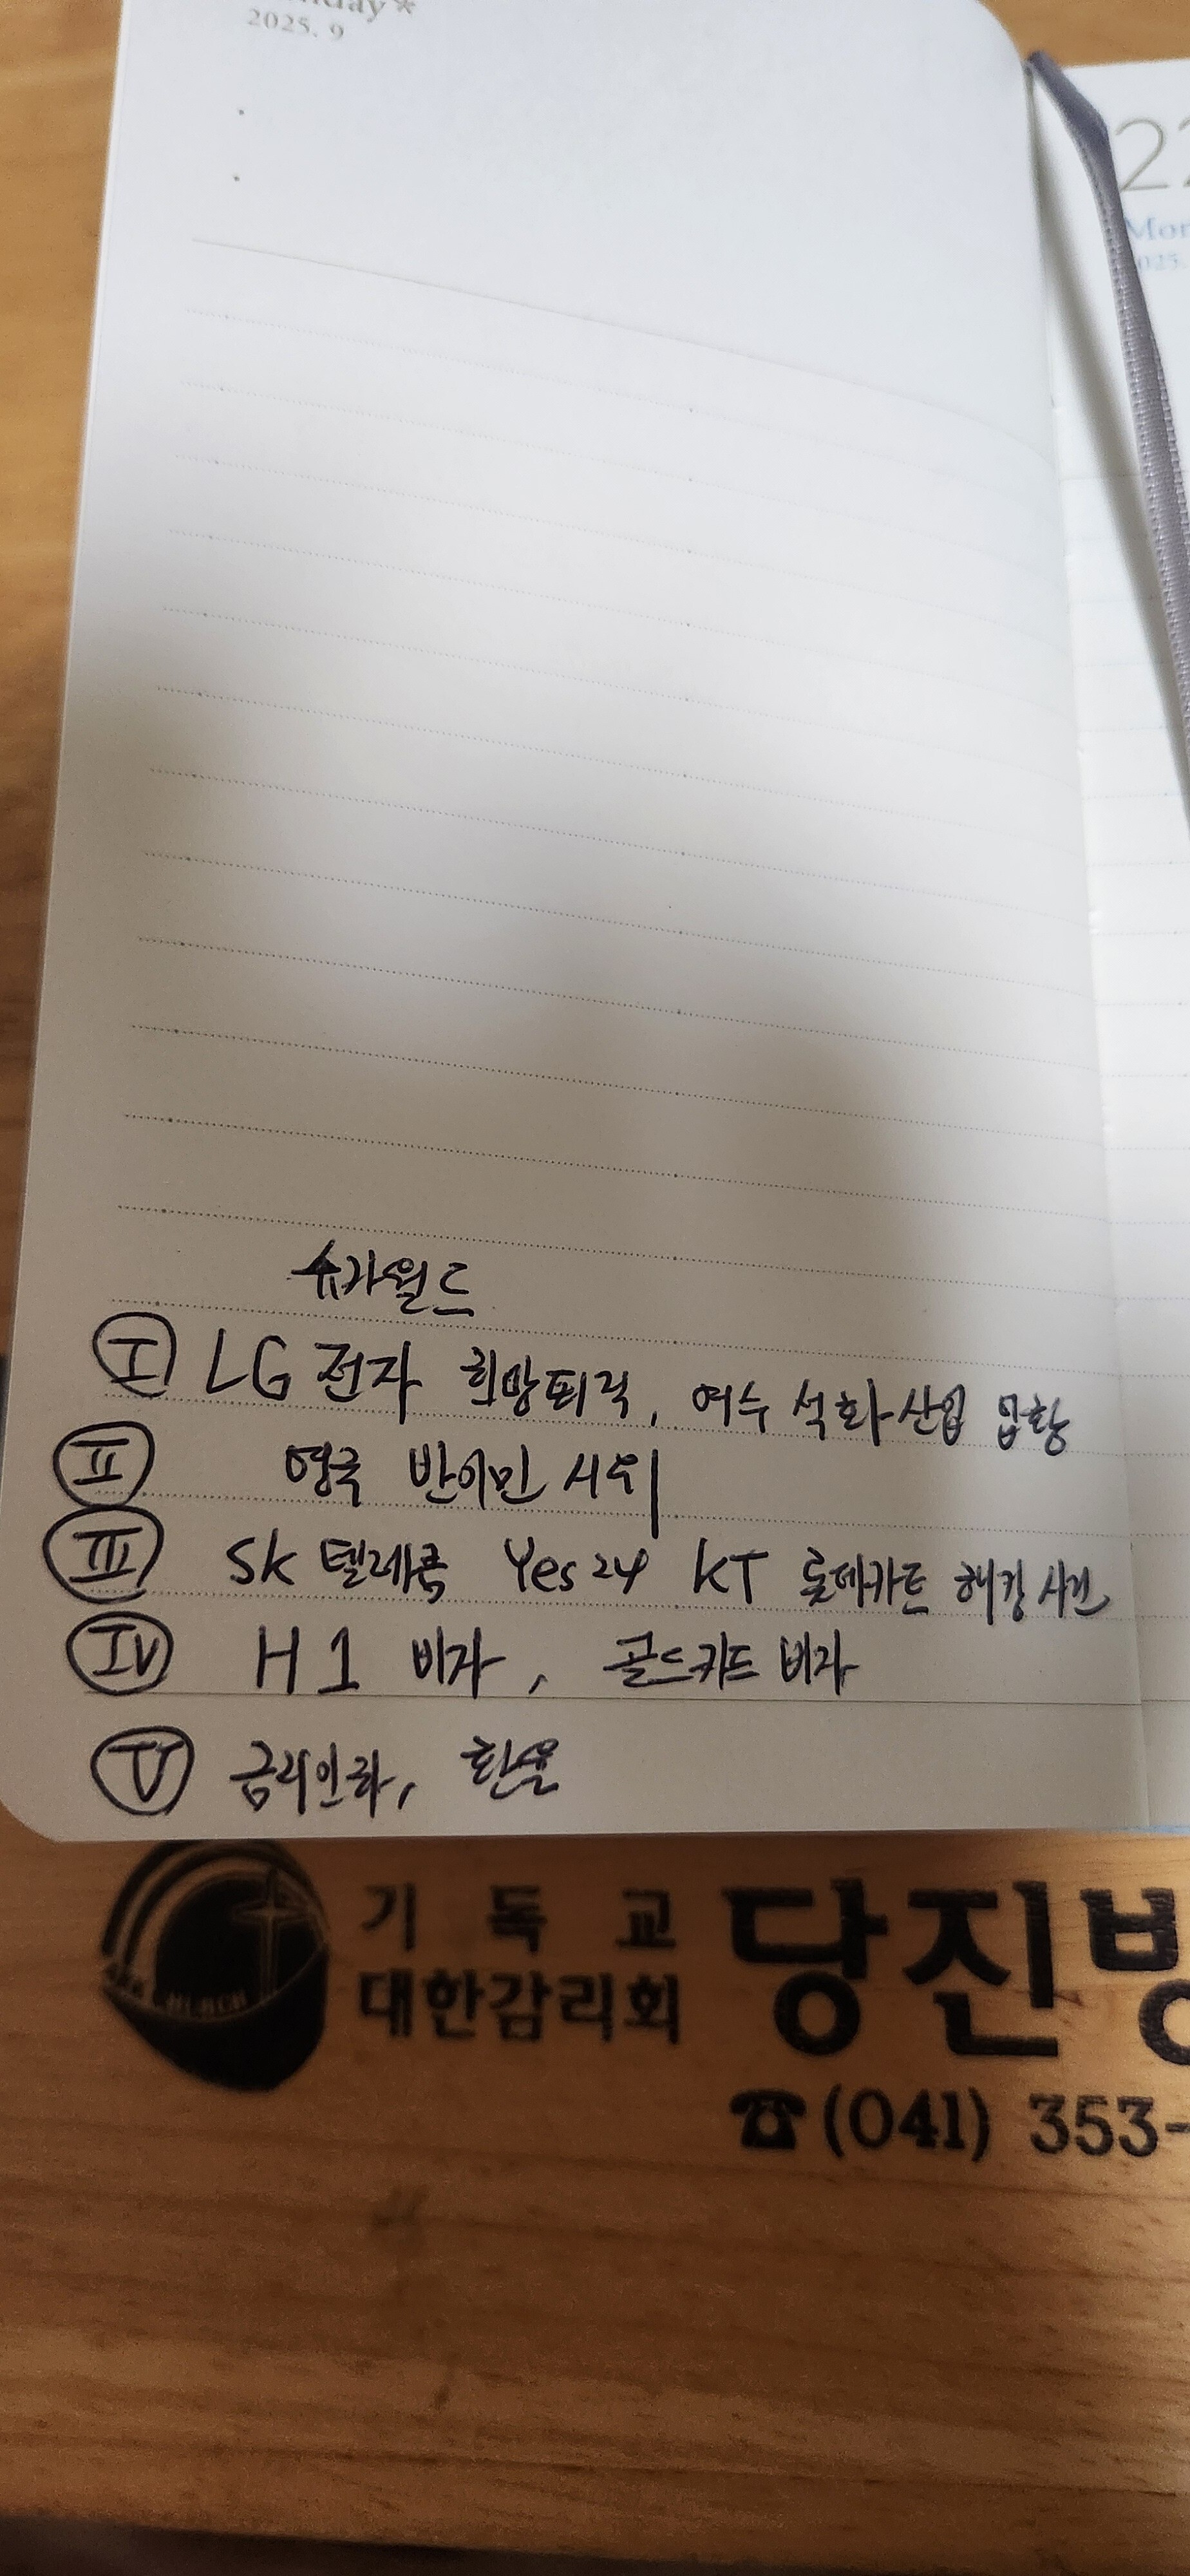 nday*
2025. 9
22
Mon
2025.
슈카월드
Ⅰ LG 전자 희망퇴직, 여수 석화산업 불황
Ⅱ 영국 반이민 시위
Ⅲ SK 텔레콤 Yes24 KT 롯데카드 해킹 사건
Ⅳ H1 비자, 골드카드 비자
Ⅴ 금리인하, 환율
기독교
대한감리회
당진방
☎(041) 353-